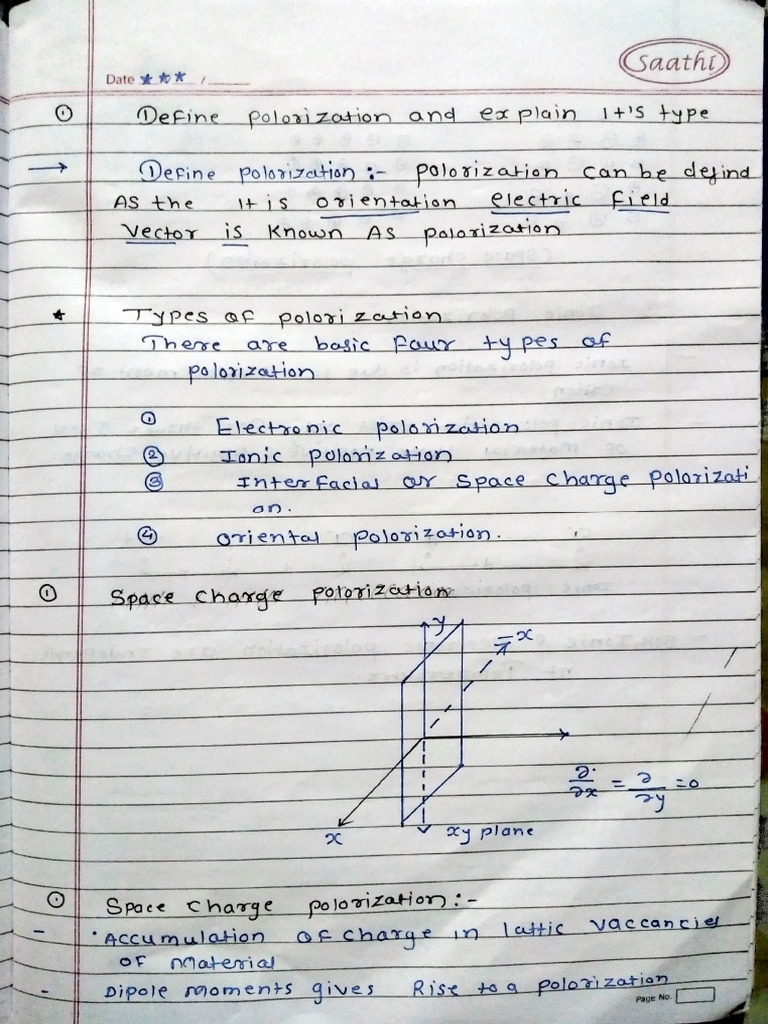 Saathi
Date ★ ★ ★ /
① Define polorization and explain It's type
→ Define polorization :- polorization can be defind
As the It is orientation electric field
Vector is known As polorization
★ Types of polorization
There are basic four types of
polorization
① Electronic polorization
② Ionic polorization
③ Interfacial or Space Charge polorizati
on.
④ oriental polorization.
① Space charge polorization
y
-x
x
xy plane
∂/∂x = ∂/∂y = 0
① Space charge polorization :-
- Accumulation of charge in lattic vaccancies
of material
- Dipole moments gives Rise to a polorization
Page No.